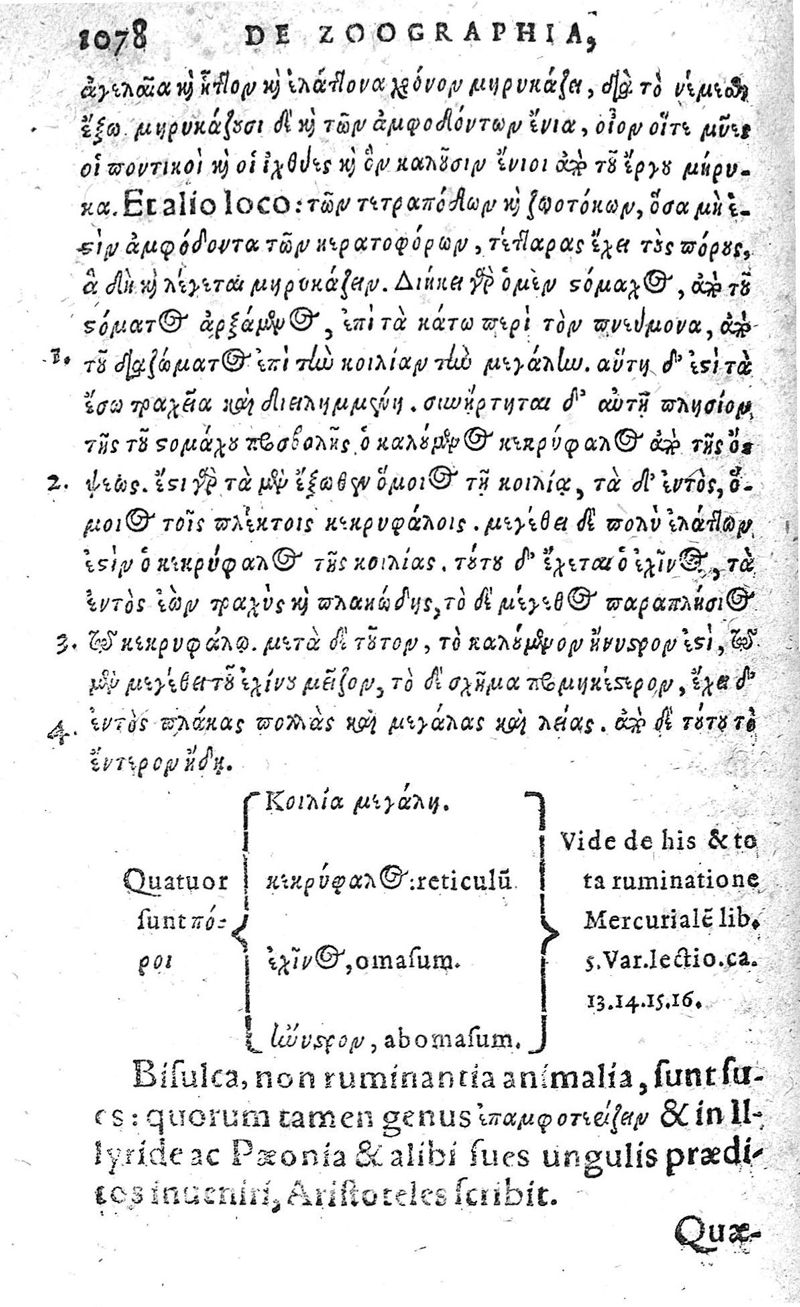 1078 DE ZOOGRAPHIA,
ἀγελαῖα κỳ ἧττον κỳ ἐλάττονα χρόνον μηρυκάζει, διὰ τὸ νέμεσθαι
ἔξω. μηρυκάζουσι δὲ κỳ τῶν ἀμφοδόντων ἔνια, οἷον οἵτε μῦες
οἱ ποντικοὶ κỳ οἱ ἰχθύες κỳ ὃν καλοῦσιν ἔνιοι ἀπὸ τοῦ ἔργου μήρυ-
κα. Et alio loco: τῶν τετραπόδων κỳ ζωοτόκων, ὅσα μὴ ἐ-
στὶν ἀμφόδοντα τῶν κερατοφόρων, τέτταρας ἔχει τοὺς πόρους,
ἃ δὴ κỳ λέγεται μηρυκάζειν. Διήκει γὰρ ὁ μὲν στόμαχος, ἀπὸ τοῦ
στόματος ἀρξάμενος, ἐπὶ τὰ κάτω περὶ τὸν πνεύμονα, ἀπὸ
1. τοῦ διαζώματος ἐπὶ τὴν κοιλίαν τὴν μεγάλην. αὕτη δ' ἐστὶ τὰ
ἔσω τραχεῖα καὶ διειλημμένη. συνήρτηται δ' αὐτῇ πλησίον
τῆς τοῦ στομάχου προσβολῆς ὁ καλούμενος κεκρύφαλος ἀπὸ τῆς ὄ-
2. ψεως. ἔστι γὰρ τὰ μὲν ἔξωθεν ὅμοιος τῇ κοιλίᾳ, τὰ δ' ἐντὸς, ὅ-
μοιος τοῖς πλέκτοις κεκρυφάλοις. μεγέθει δὲ πολὺ ἐλάττων
ἐστὶν ὁ κεκρύφαλος τῆς κοιλίας. τούτου δ' ἔχεται ὁ ἐχῖνος, τὰ
ἐντὸς ἐὼν τραχὺς κỳ πλακώδης, τὸ δὲ μέγεθος παραπλήσιος
3. τῷ κεκρυφάλῳ. μετὰ δὲ τοῦτον, τὸ καλούμενον ἤνυστρον ἐστὶ, τῷ
μὲν μεγέθει τοῦ ἐχίνου μεῖζον, τὸ δὲ σχῆμα προμηκέστερον, ἔχει δ'
4. ἐντὸς πλάκας πολλὰς καὶ μεγάλας καὶ λείας. ἀπὸ δὲ τούτου τὸ
ἔντερον ἤδη.
Quatuor sunt πό-
ροι
Κοιλία μεγάλη.
κεκρύφαλος: reticulũ
ἐχῖνος, omasum.
ἤνυστρον, abomasum.
Vide de his & to
ta ruminatione
Mercurialẽ lib.
5. Var. lectio. ca.
13.14.15.16.
Bisulca, non ruminantia animalia, sunt su-
es: quorum tamen genus ἐπαμφοτερίζειν & in Il-
lyride ac Pæonia & alibi sues ungulis prædi-
tos inueniri, Aristoteles scribit.
Quæ-